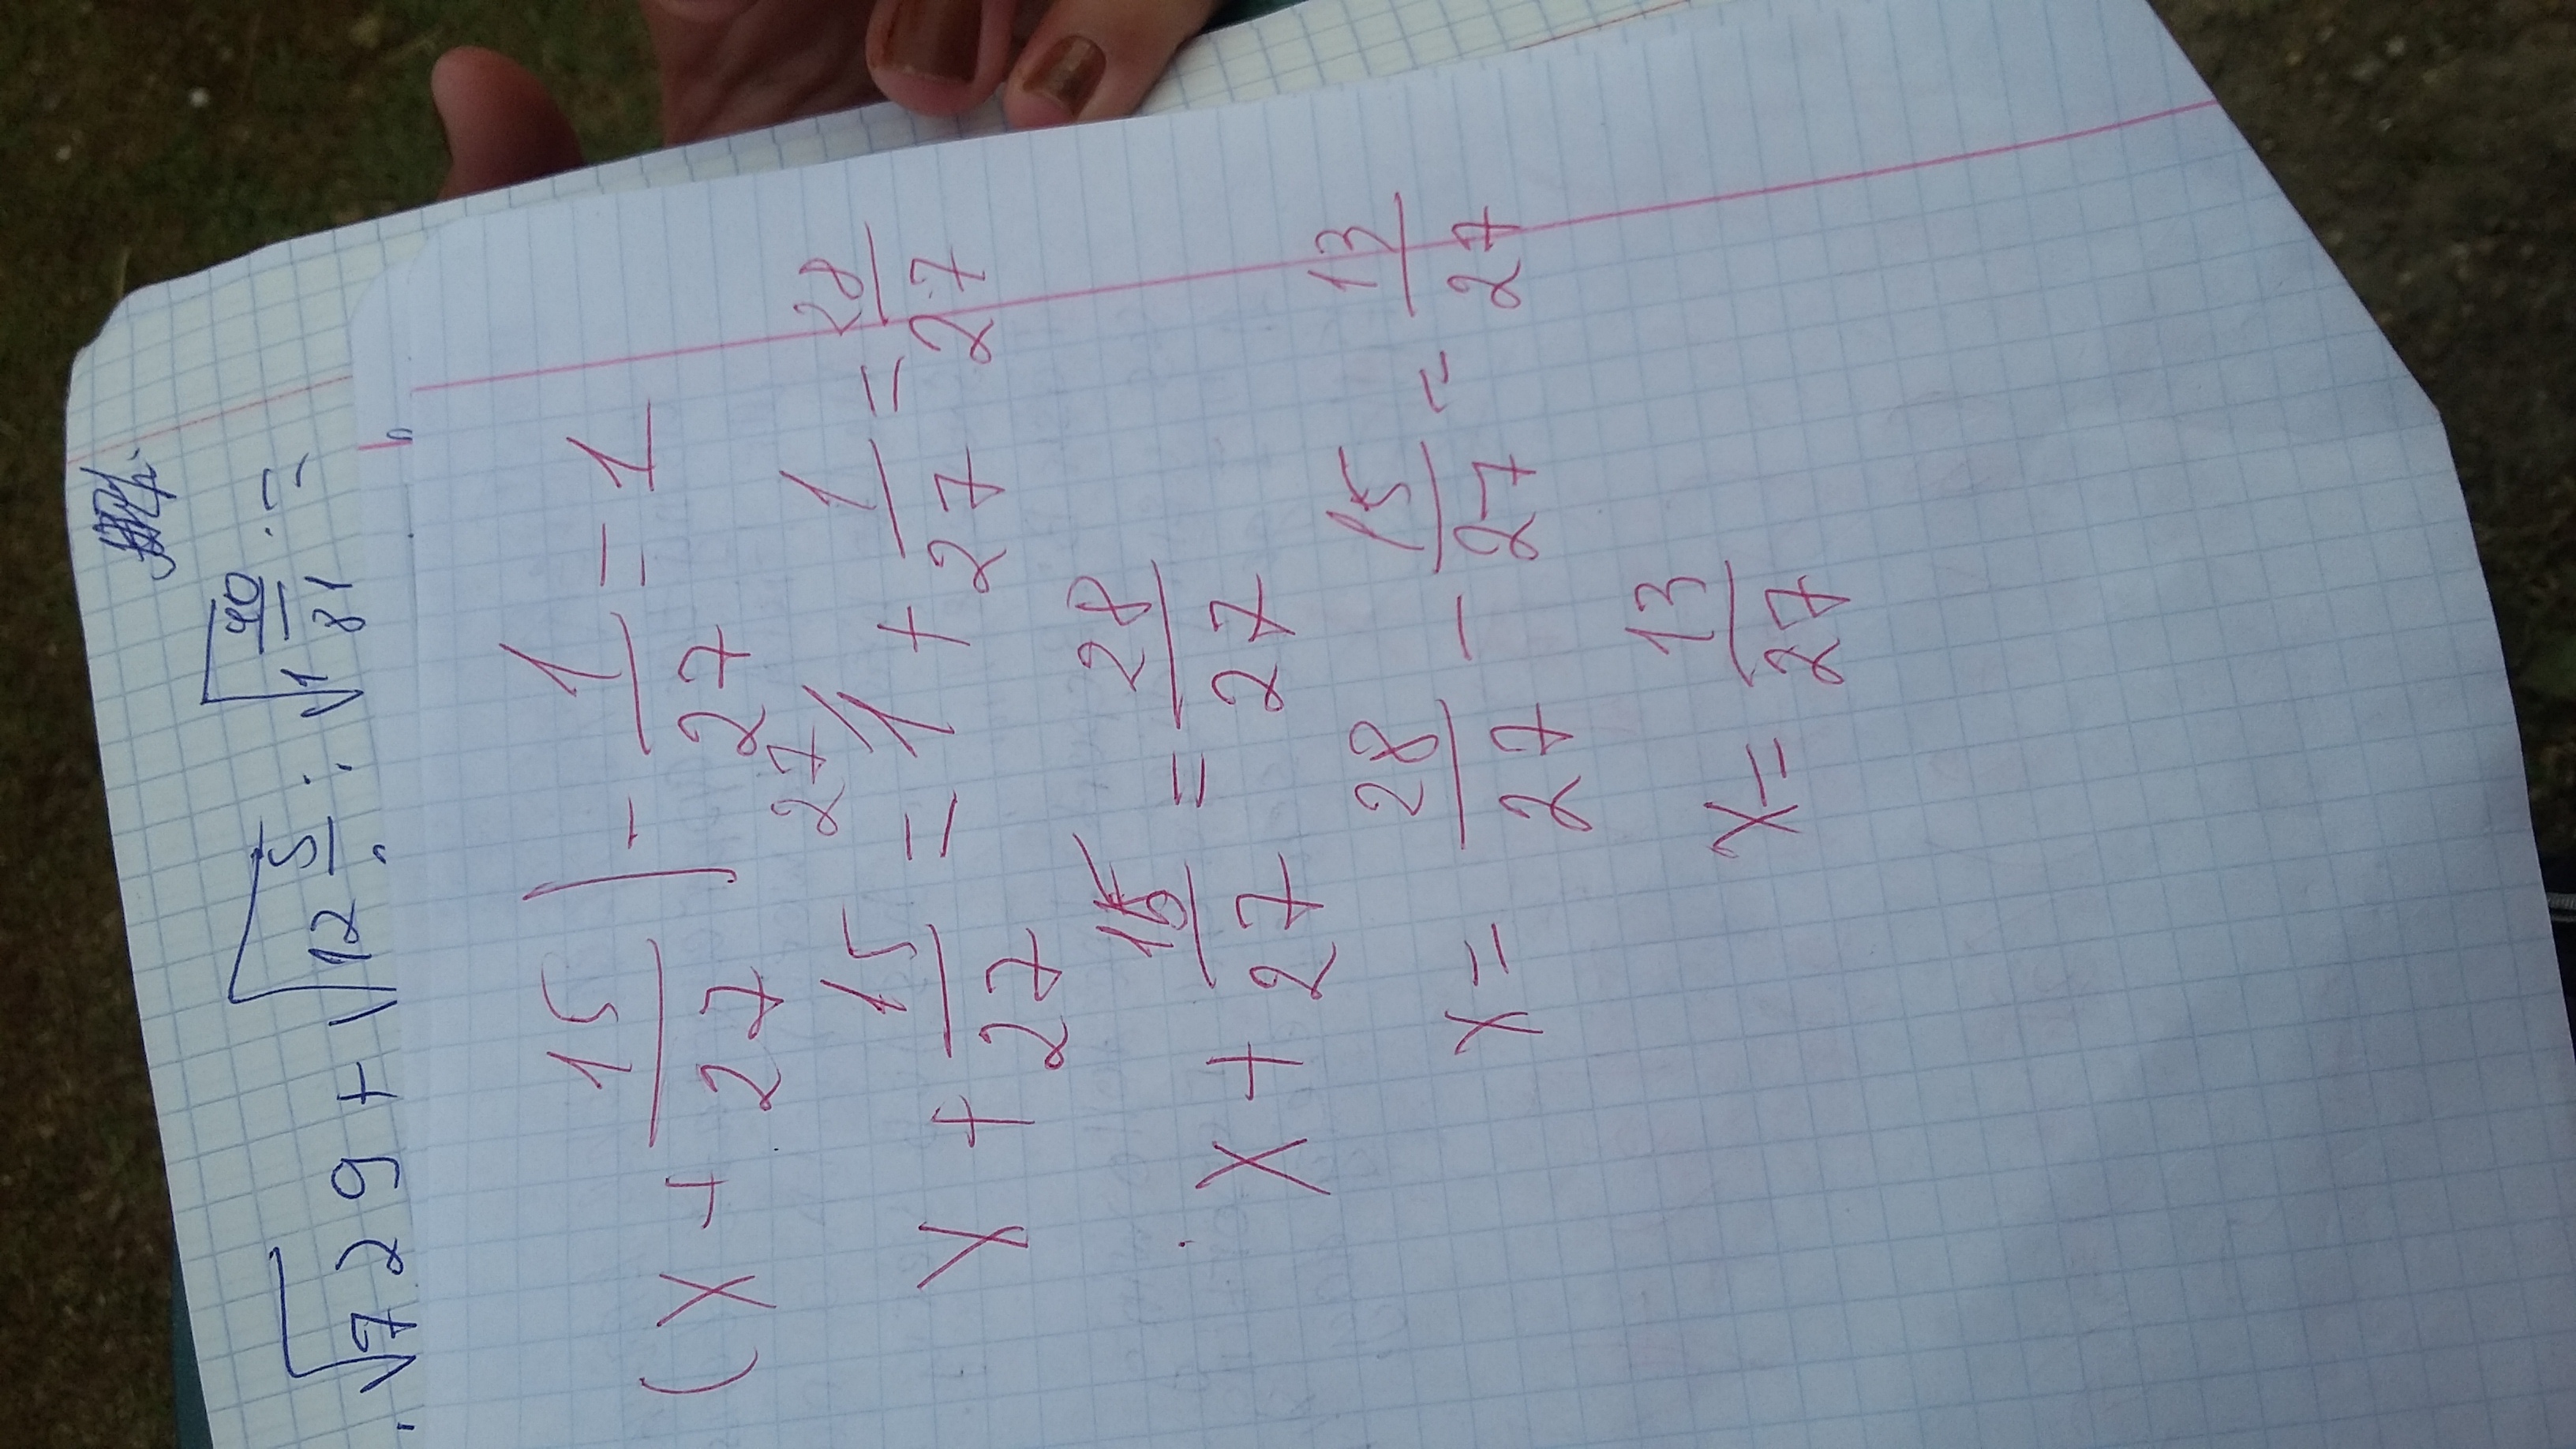 √729 + √12 5/ : √1 40/81 : =
(x + 15/27) - 1/27 = 1
x + 15/27 = 27/1 + 1/27 = 28/27
x + 15/27 = 28/27
x = 28/27 - 15/27 = 13/27
x = 13/27